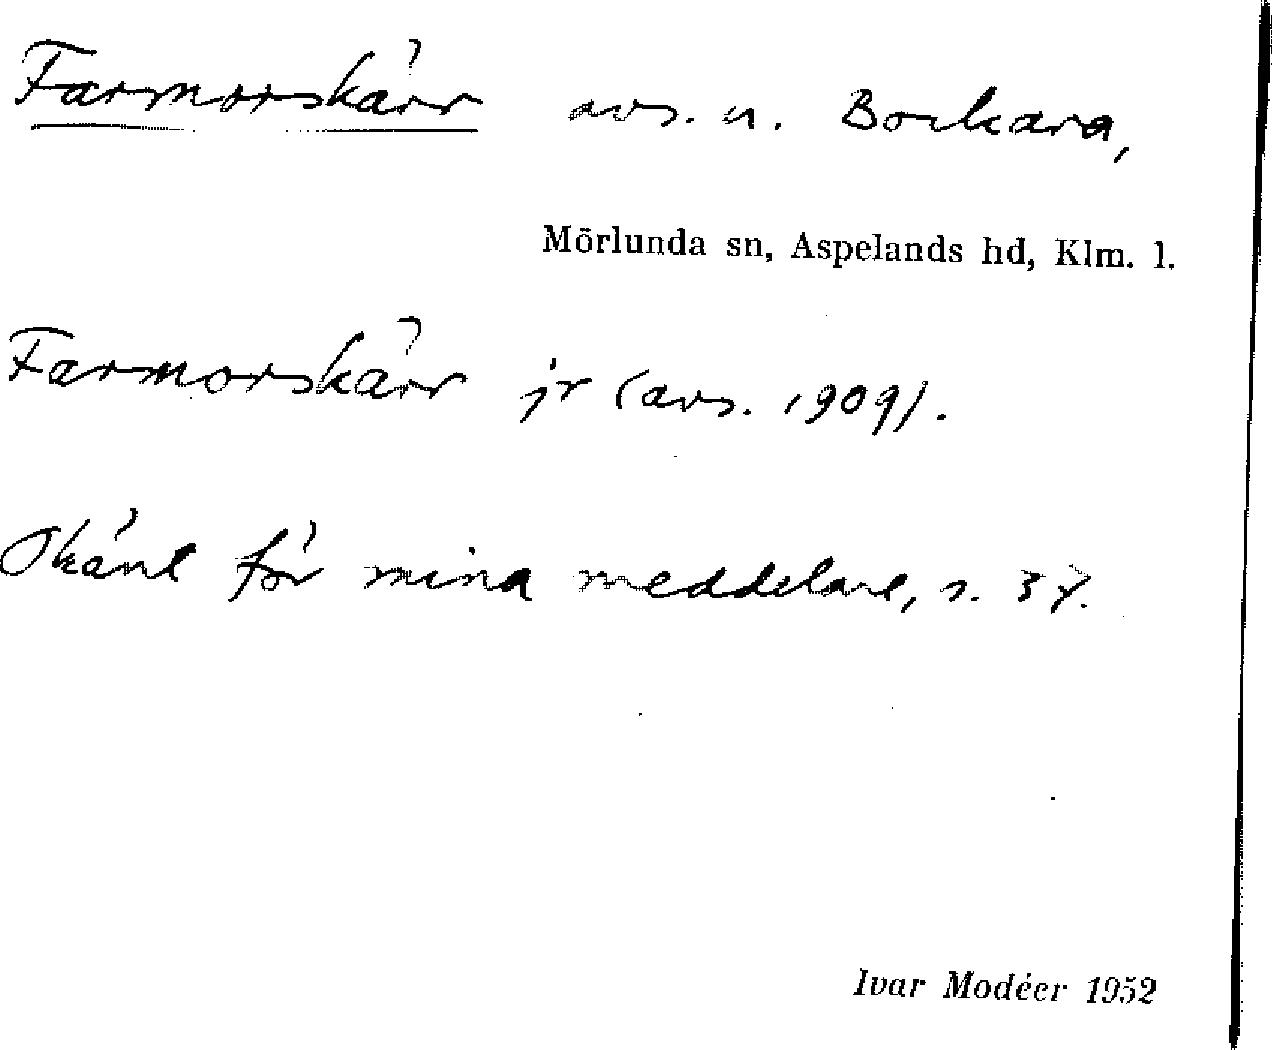 Farmorskärr avs. u. Bockara,
Mörlunda sn, Aspelands hd, Klm. l.
Farmorskärr jr (avs. 1909).
Okänt för mina meddelare, s. 37.
Ivar Modéer 1952